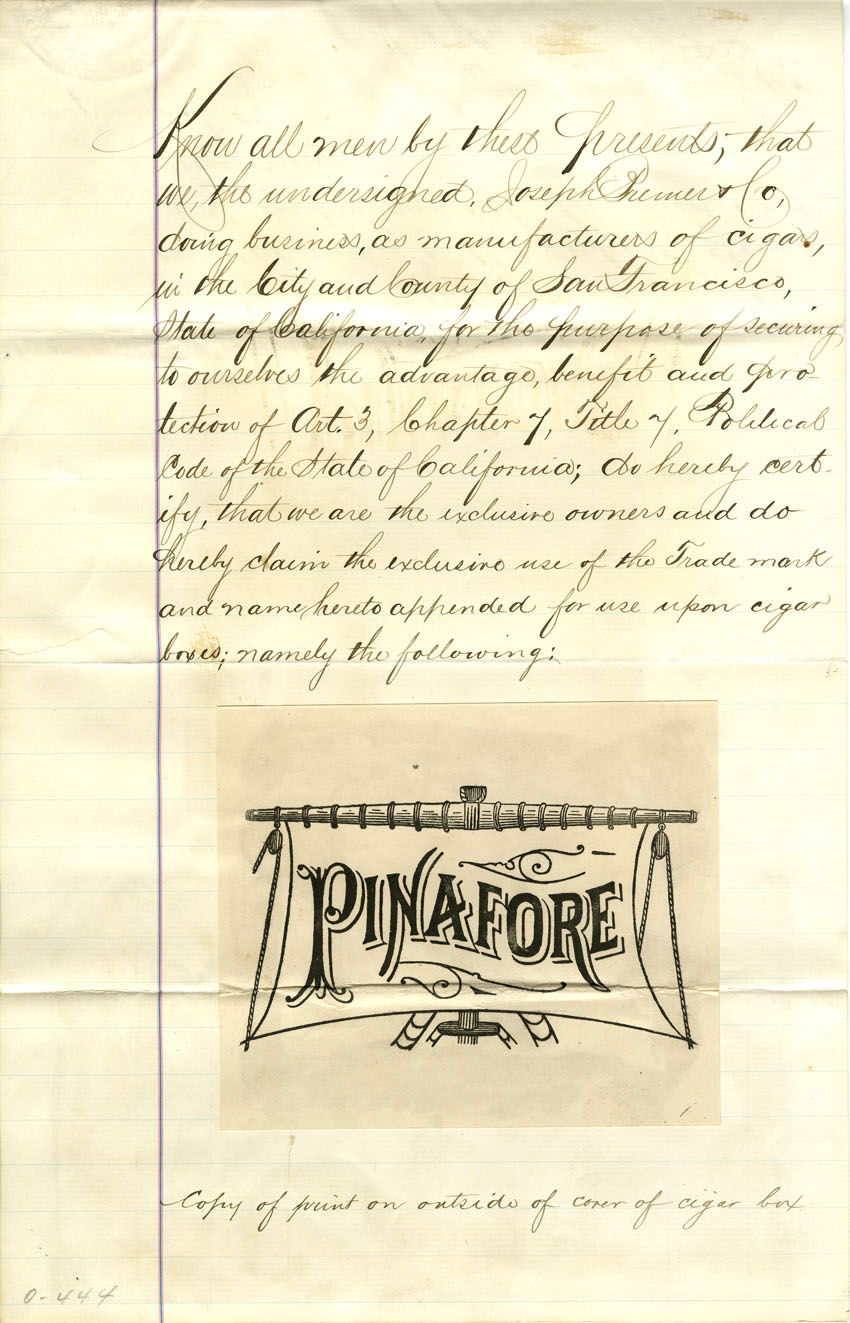 Know all men by these presents; that
we, the undersigned, Joseph Premer & Co,
doing business, as manufacturers of cigars,
in the City and County of San Francisco,
State of California, for the purpose of securing
to ourselves the advantage, benefit and pro-
tection of Art. 3, Chapter 7, Title 7, Political
Code of the State of California; do hereby cert-
ify, that we are the exclusive owners and do
hereby claim the exclusive use of the Trade mark
and name hereto appended for use upon cigar
boxes; namely the following:
PINAFORE
Copy of print on outside of cover of cigar box
0-444